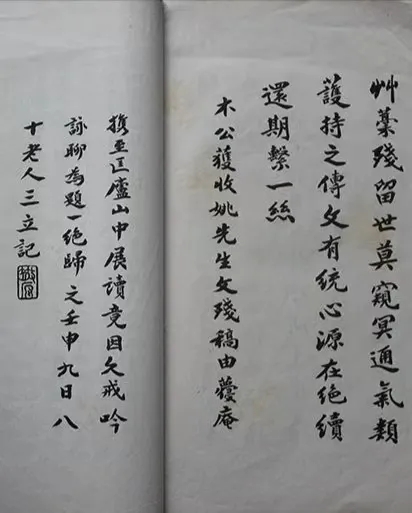 艸藁殘留世莫窺冥通氣類
護持之傳文有統心源在絕續
還期繫一絲
木公獲收姚先生文殘稿由蘉庵
攜至匡廬山中展讀竟因久戒吟
詠聊為題一絕歸之壬申九日八
十老人三立記